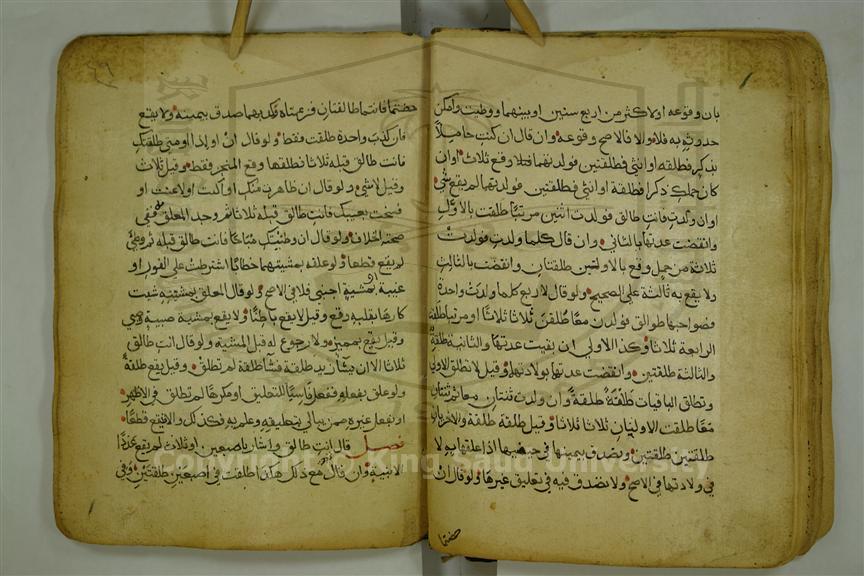 بان وقوعه او لاكثر من اربع سنين او بينهما ووطيت وامكن
حدوثه به فلا والا فالاصح وقوعه وان قال ان كنت حاملا
بذكر فطلقه او انثى فطلقتين فولدتهما وقع ثلاث او ان
كان حملك ذكرا فطلقة او انثى فطلقتين فولدتهما لم يقع شي
او ان ولدت فانت طالق فولدت اثنين مرتبا طلقت بالاول
وانقضت عدتها بالثاني وان قال كلما ولدت فولدت
ثلاثة من حمل وقع بالاولين طلقتان وانقضت بالثالث
ولا يقع به ثالثة على الصحيح ولو قال لاربع كلما ولدت واحدة
فصواحبها طوالق فولدن معا طلقن ثلاثا ثلاثا او مرتبا طلقت
الرابعة ثلاثا وكذا الاولى ان بقيت عدتها والثانية طلقة
والثالثة طلقتين وانقضت عدتهما بولادتهما وقيل لا تطلق الاولى
وتطلق الباقيات طلقة طلقة وان ولدت ثنتان معا ثم ثنتان
معا طلقت الاوليان ثلاثا ثلاثا وقيل طلقة طلقة والاخريان
طلقتين طلقتين وتصدق بيمينها في حيضها اذا علقها به لا
في ولادتها في الاصح ولا تصدق فيه في تعليق غيرها ولو قال ان
حضتما
حضتما فانتما طالقتان فزعمتاه وكذبهما صدق بيمينه ولا يقع
فان كذب واحدة طلقت فقط ولو قال ان او اذا او متى طلقتك
فانت طالق قبله ثلاثا فطلقها وقع المنجز فقط وقيل ثلاث
وقيل لا شي ولو قال ان ظاهرت منك او آليت او لاعنت او
فسخت بعيبك فانت طالق قبله ثلاثا ثم وجد المعلق به ففي
صحته الخلاف ولو قال ان وطئتك مباحا فانت طالق قبله ثم وطئ
لم يقع قطعا ولو علقه بمشيتها خطابا اشترطت على الفور او
غيبة او بمشية اجنبي فلا في الاصح ولو قال المعلق بمشيته شيت
كارها بقلبه وقع وقيل لا يقع باطنا ولا يقع بمشية صبية وصبي
وقيل يقع بمميز ولا رجوع له قبل المشية ولو قال انت طالق
ثلاثا الا ان يشاء زيد طلقة فشاء طلقة لم تطلق وقيل يقع طلقة
ولو علق بفعله ففعل ناسيا للتعليق او مكرها لم تطلق في الاظهر
او بفعل غيره ممن يبالي بتعليقه وعلم به فكذلك والا فيقع قطعا
فصل قال انت طالق واشار باصبعين او ثلاث لم يقع عددا
الا بنية وان قال مع ذلك هكذا طلقت في اصبعين طلقتين وفي
Copyright © King Saud University